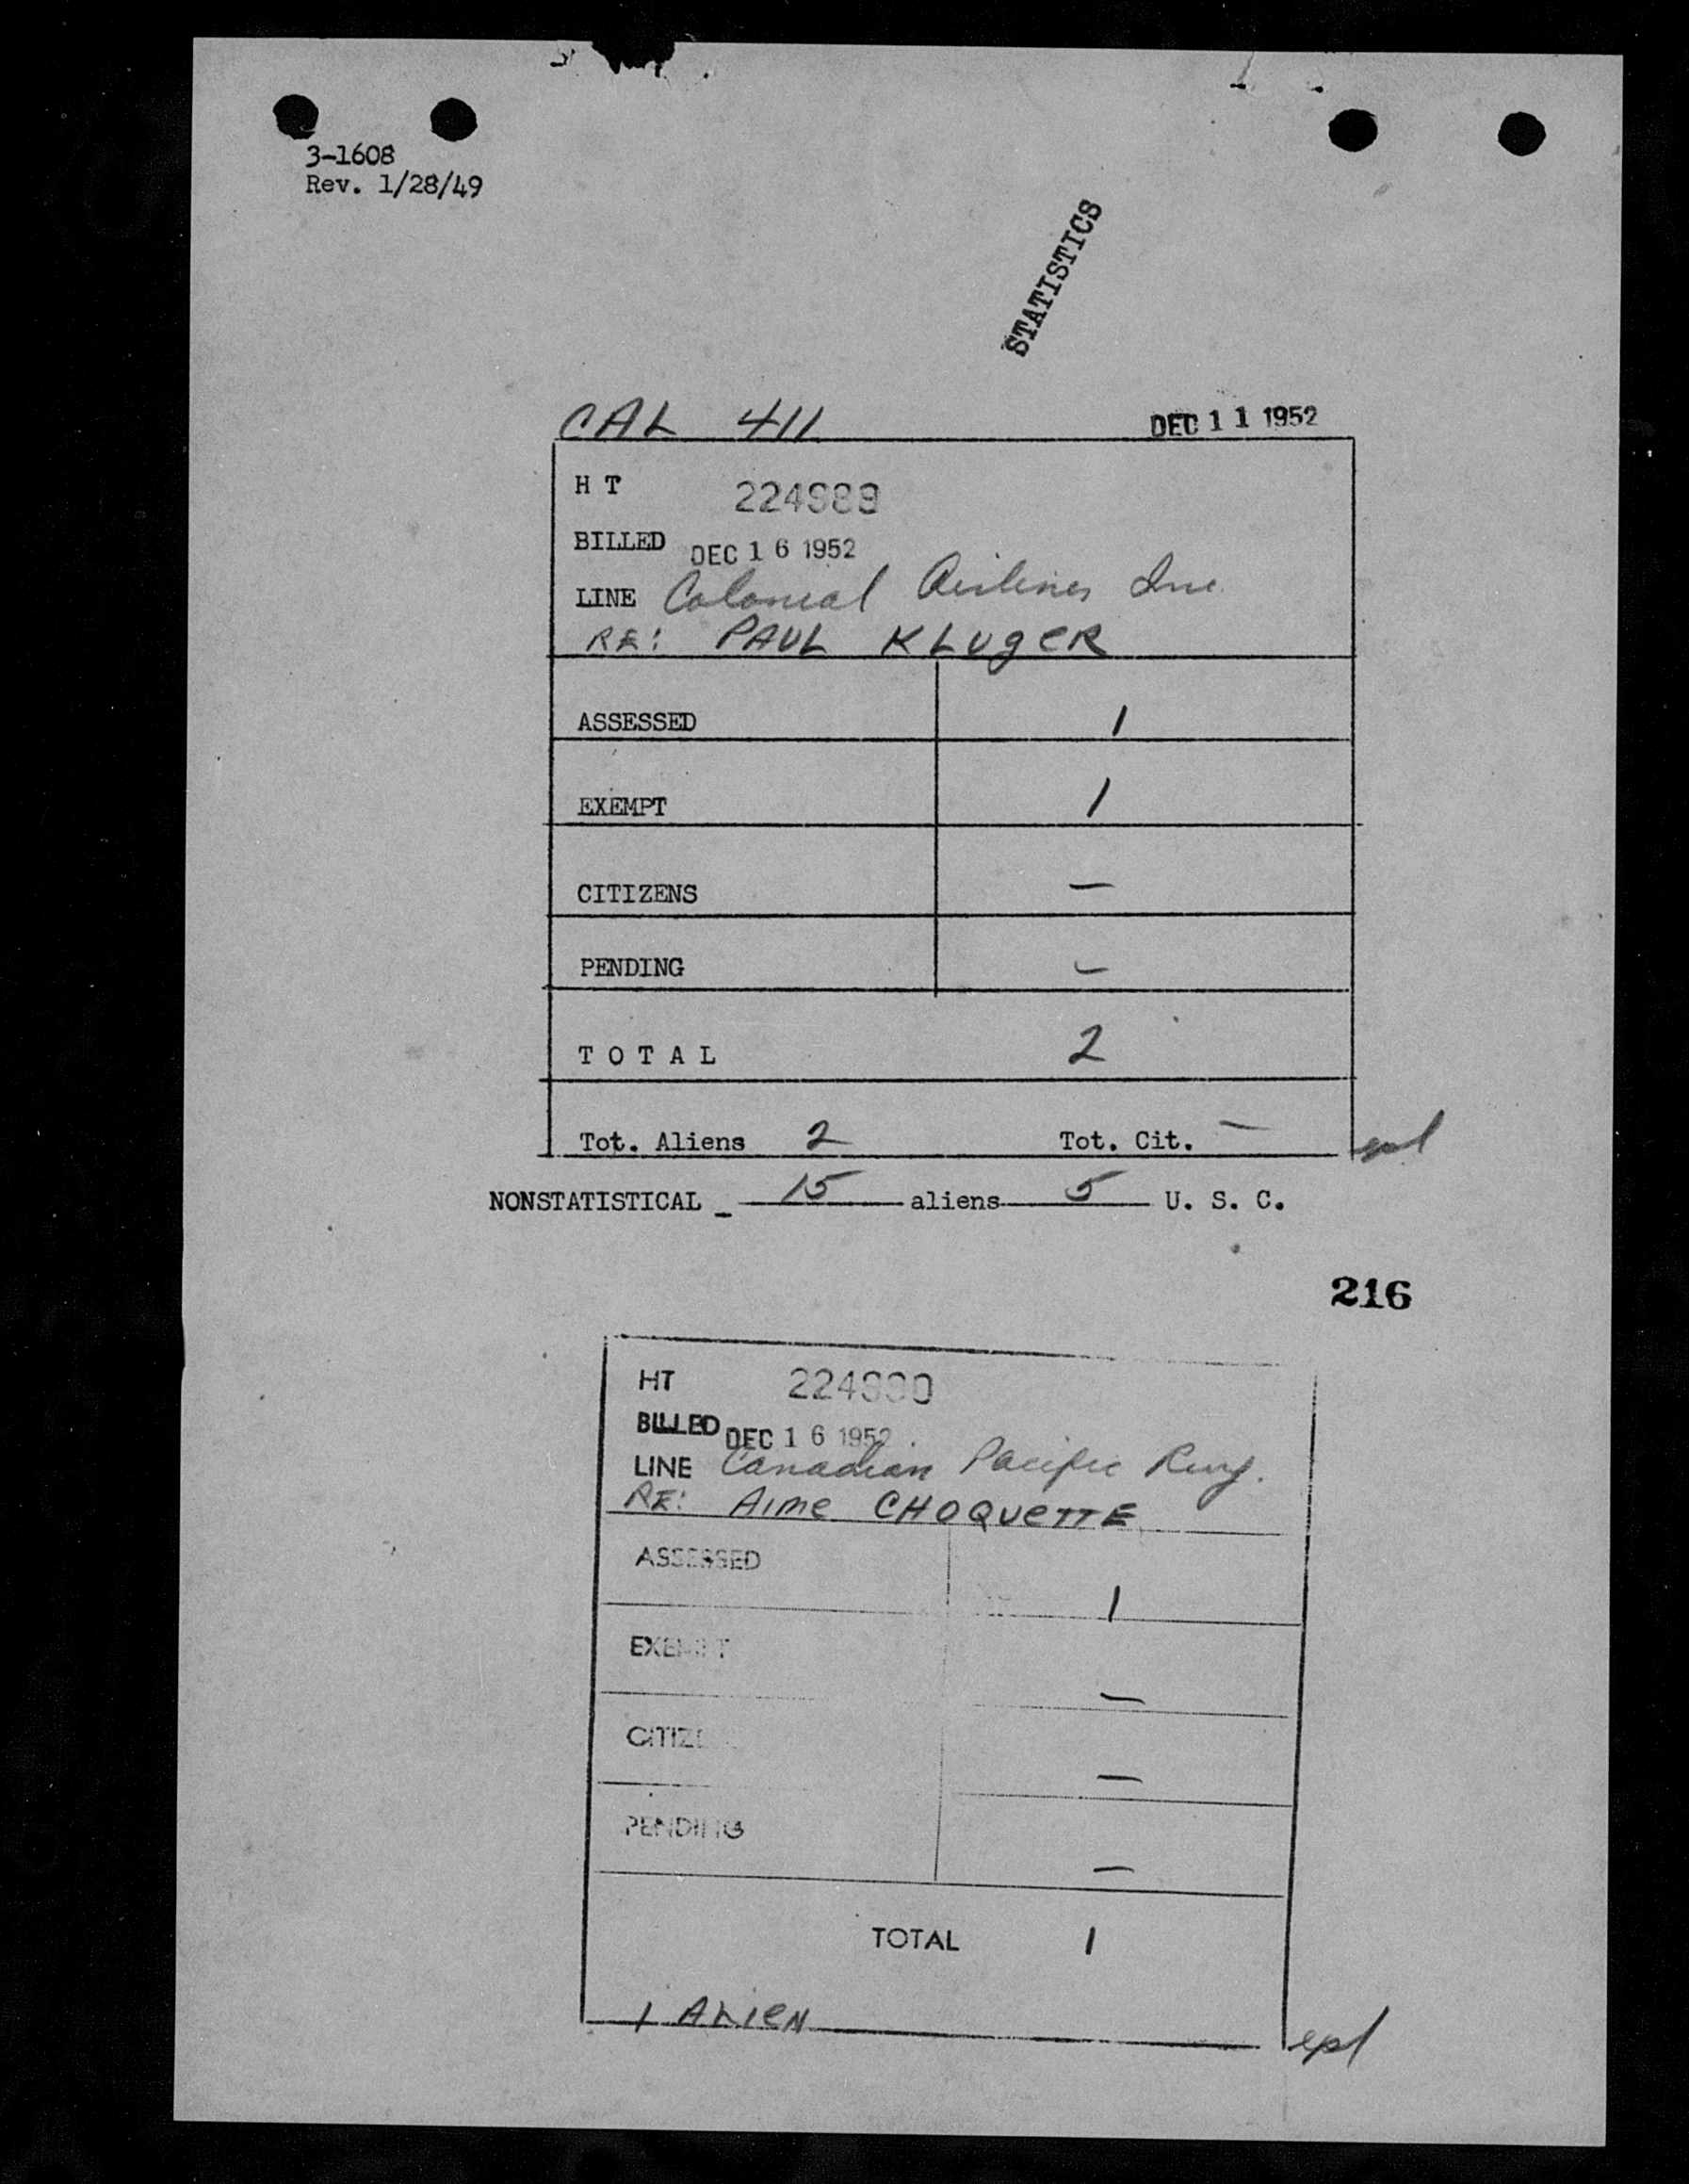 3-1608
Rev. 1/28/49
STATISTICS
CAL 411 DEC 11 1952
H T 224989
BILLED DEC 16 1952
LINE Colonial Airlines Inc.
RE: PAUL KLUgeR
ASSESSED 1
EXEMPT 1
CITIZENS —
PENDING —
T O T A L 2
Tot. Aliens 2 Tot. Cit. —
NONSTATISTICAL _ 15 aliens 5 U. S. C.
216
HT 224990
BILLED DEC 16 1952
LINE Canadian Pacific Rwy.
RE: Aime CHOQUeTTE
ASSESSED 1
EXEMPT —
CITIZE —
PENDING —
TOTAL 1
1 ALIeN
epl